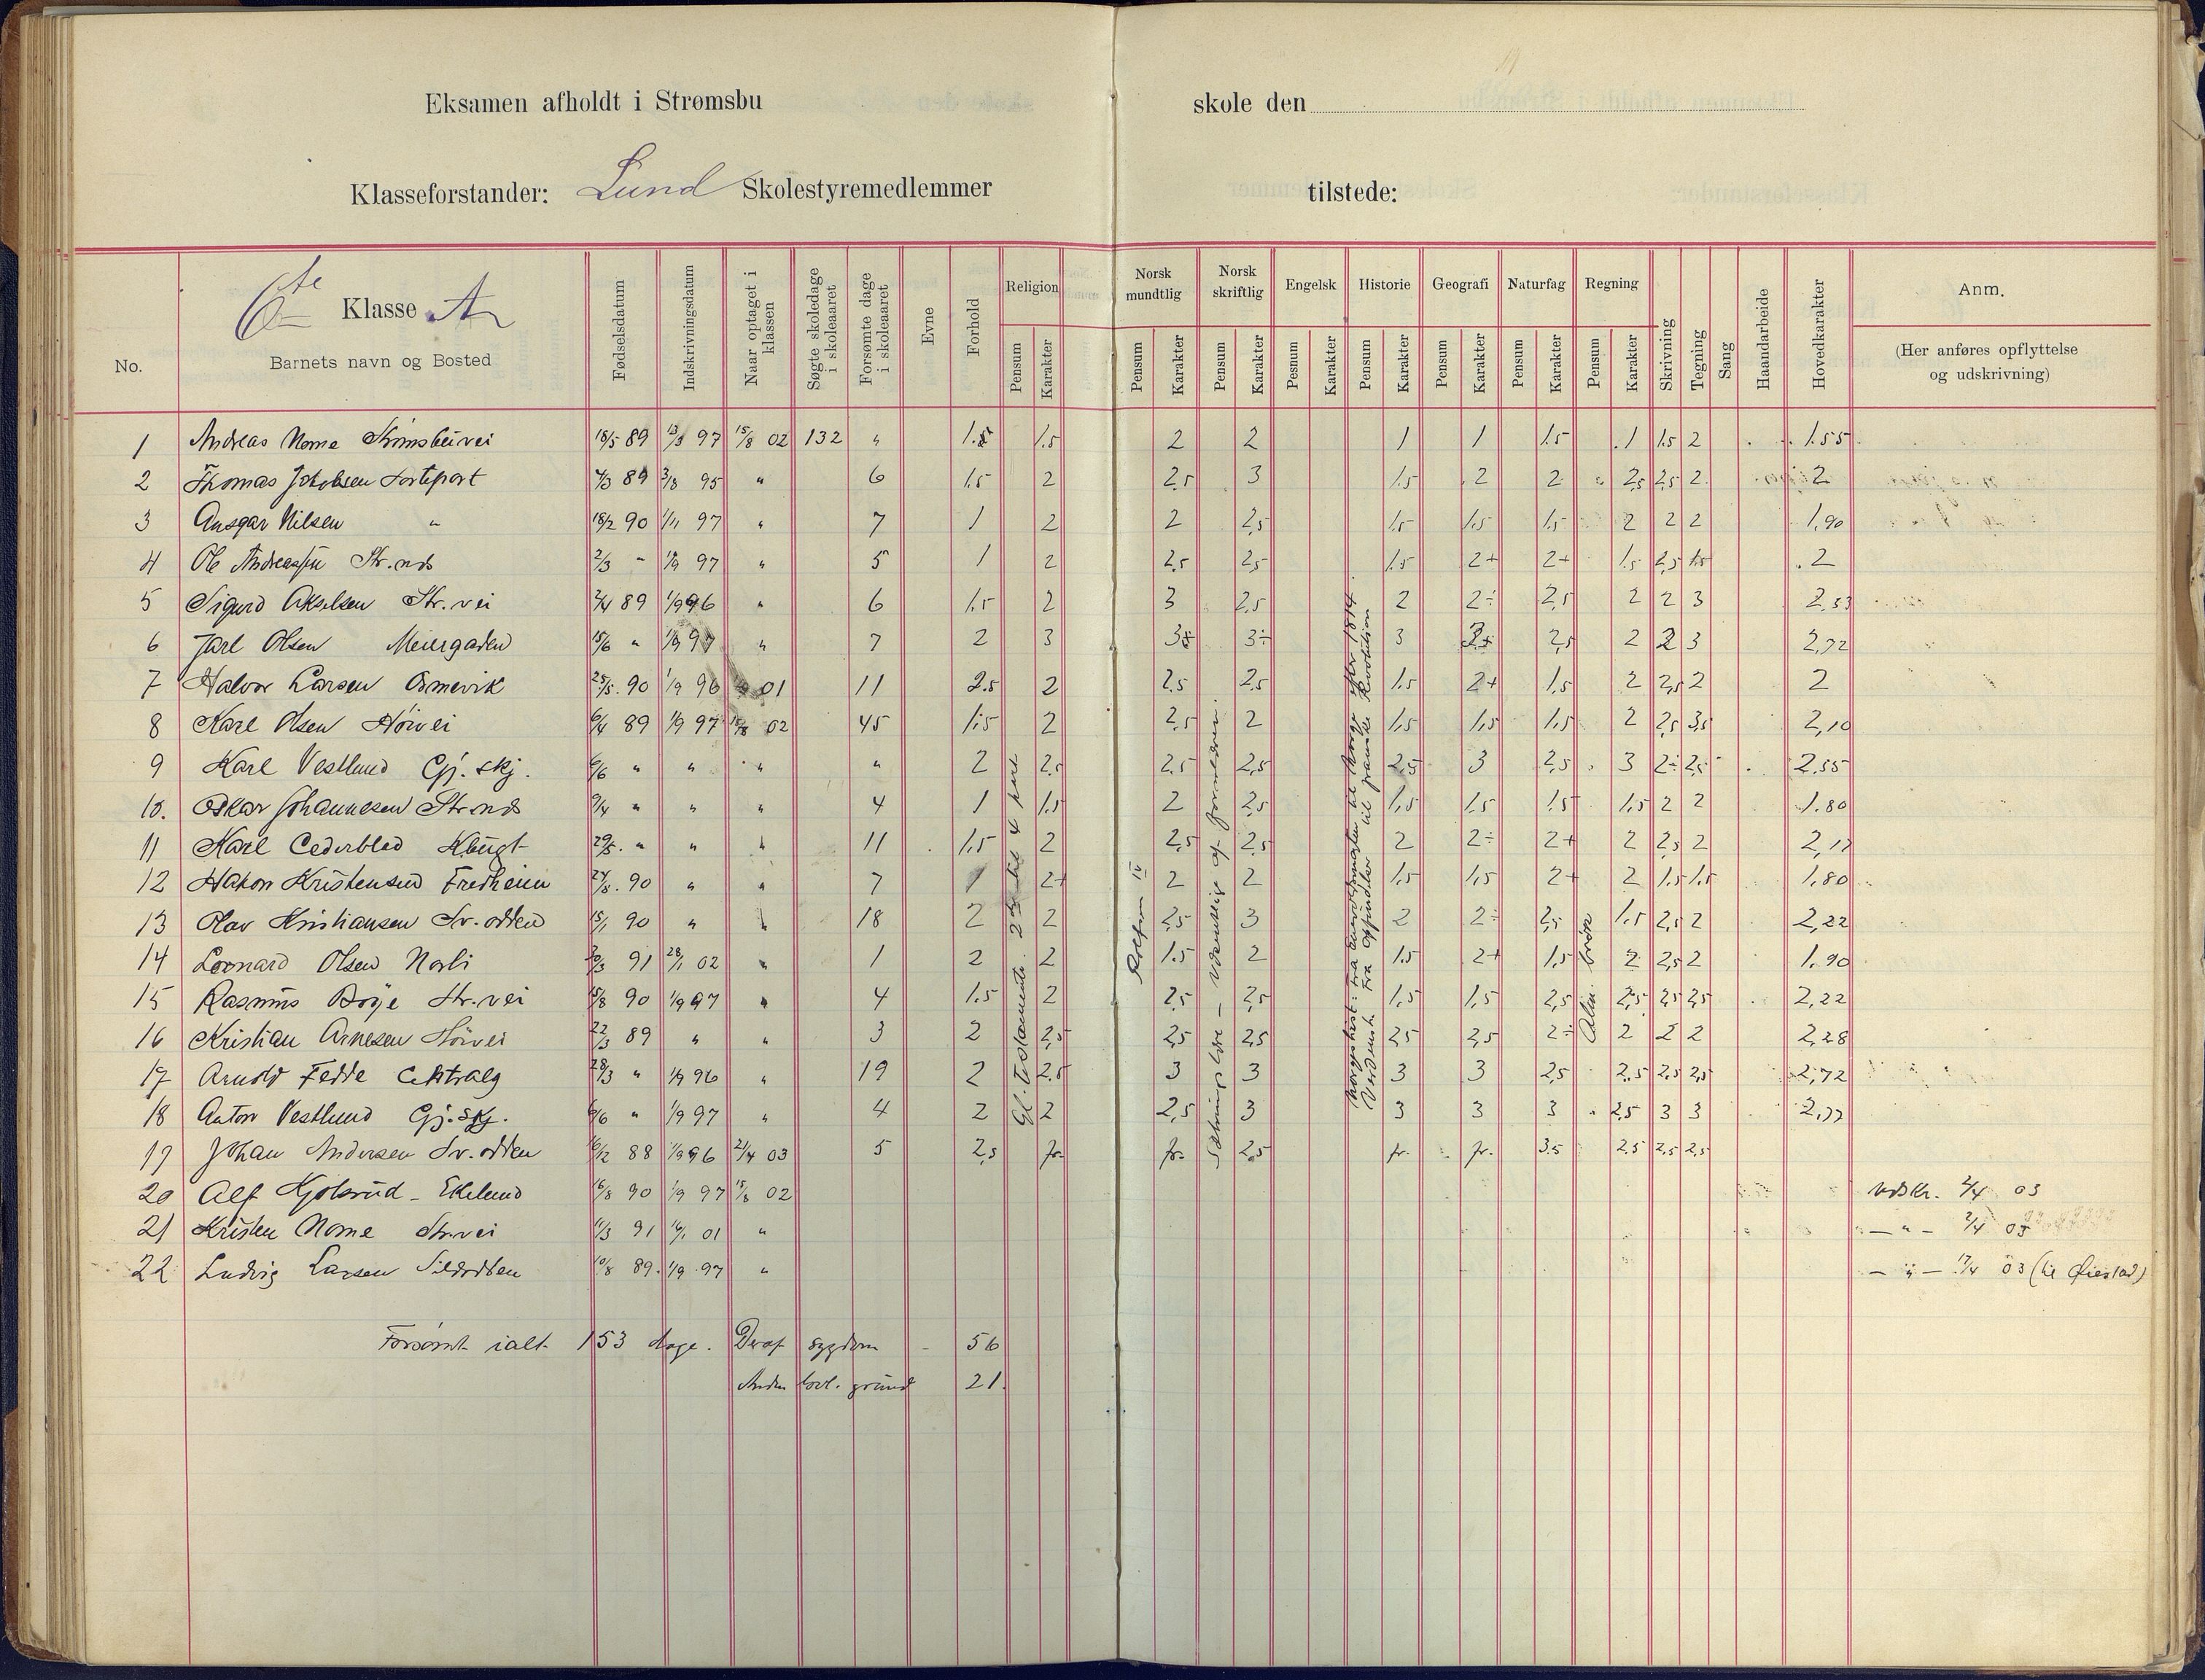 Eksamen afholdt i Strømsbu skole den
Klasseforstander: Lund Skolestyremedlemmer tilstede:
No. 6te Klasse A Barnets navn og Bosted Fødselsdatum Indskrivningsdatum Naar optaget i klassen Søgte skoledage i skoleaaret Forsømte dage i skoleaaret Evne Forhold Religion Pensum Karakter Norsk mundtlig Pensum Karakter Norsk skriftlig Pensum Karakter Engelsk Pesnum Karakter Historie Pensum Karakter Geografi Pensum Karakter Naturfag Pensum Karakter Regning Pensum Karakter Skrivning Tegning Sang Haandarbeide Hovedkarakter Anm. (Her anføres opflyttelse og udskrivning)
1 Andreas Nome Strømsbuvei 18/5 89 13/3 97 15/8 02 132 " 1.5 1.5 2 2 1 1 1.5 1 1.5 2 1.55
2 Thomas Jakobsen 4/3 89 3/8 95 " 6 1.5 2 2,5 3 1.5 2 2 2,5 2,5 2 2
3 Ansgar Nilsen " 18/2 90 1/11 97 " 7 1 2 2 2,5 1.5 1.5 1.5 2 2 2 1,90
4 Ole Andreassen Str.nds 2/3 " 1/9 97 " 5 1 2 2,5 2,5 1.5 2+ 2+ 1.5 2,5 1.5 2
5 Sigurd Akselsen Str. vei 2/4 89 1/9 96 " 6 1.5 2 3 2,5 2 2÷ 2,5 2 2 3 2,33
6 Jarl Olsen Meiergaden 15/6 " 1/9 97 " 7 2 3 3 3÷ 3 2,5 2 2 3 2,72
7 Halvor Larsen Osmevik 25/5. 90 1/9 96 01 11 2.5 2 2,5 2,5 1.5 2+ 1,5 2 2,5 2 2
8 Karl Olsen Höivei 6/4 89 1/9 97 15/8 02 45 1.5 2 2,5 2 1,5 1,5 1,5 2 2,5 3,5 2,10
9 Karl Vestlund Gj. skj. 6/6 " " " " 2 2.5 2.5 2,5 2,5 3 2,5 3 2÷ 2,5 2.55
10. Oskar Johannesen Str.nds 9/4 " " " 4 1 1.5 2 2,5 1,5 1,5 1.5 1,5 2 2 1.80
11 Karl Cederblad Kbugt 29/5. " " " 11 1,5 2 2,5 2,5 2 2÷ 2+ 2 2,5 2 2,17
12 Hakon Kristensen Fredheim 24/8. 90 " " 7 1 2+ 2 2 1,5 1,5 2+ 2 1.5 1.5 1,80
13 Olav Kristiansen Sv. odden 15/1 90 " " 18 2 2 2,5 3 2 2÷ 2,5 1.5 2,5 2 2,22
14 Leonard Olsen Norli 91 28/1 02 " 1 2 2 1.5 2 1.5 2+ 1,5 2 2,5 2 1.90
15 Rasmus Boye Str. vei 15/8 90 1/9 97 " 4 1.5 2 2,5 2,5 1,5 1,5 2,5 2,5 2,5 2,5 2,22
16 Kristian Arnesen Höivei 22/3 89 " " 3 2 2,5 2,5 2,5 2,5 2,5 2÷ 2 2 2 2,28
17 Arnold Fedde 28/3 " 1/9 96 " 19 2 2.5 3 3 3 3 2,5 2.5 2,5 2,5 2,72
18 Anton Vestlund Gj. skj. 6/6 " 1/9 97 " 4 2 2 2,5 3 3 3 3 2,5 3 3 2,77
19 Johan Andersen Sv. odden 16/12 88 1/9 96 21/4 03 5 2,5 fr. fr. 2,5 fr. fr. 3.5 2.5 2,5 2,5
20 Alf Kjølsrud - Ekelund 16/8 90 1/9 97 15/8 02 Udskr. 2/4 03
21 Kristen Nome Str. vei 11/3 91 16/1 01 " — " — 2/4 03
22 Ludvig Larsen Sildodden 10/8 89. 1/9 97 " — " — 17/4 03 (til Øiestad)
Gl. Testamente. 2den til 4 part
Rolfsen IV
Sætningslære - væsentlig af formlæren.
Norgeshist: Fra til Norge efter 1814.
Verdensh. Fra opfindelser til franske Revolution
Alm. brøk
Forsømt ialt 153 dage. Deraf sygdom - 56
Anden lovl. grund 21.